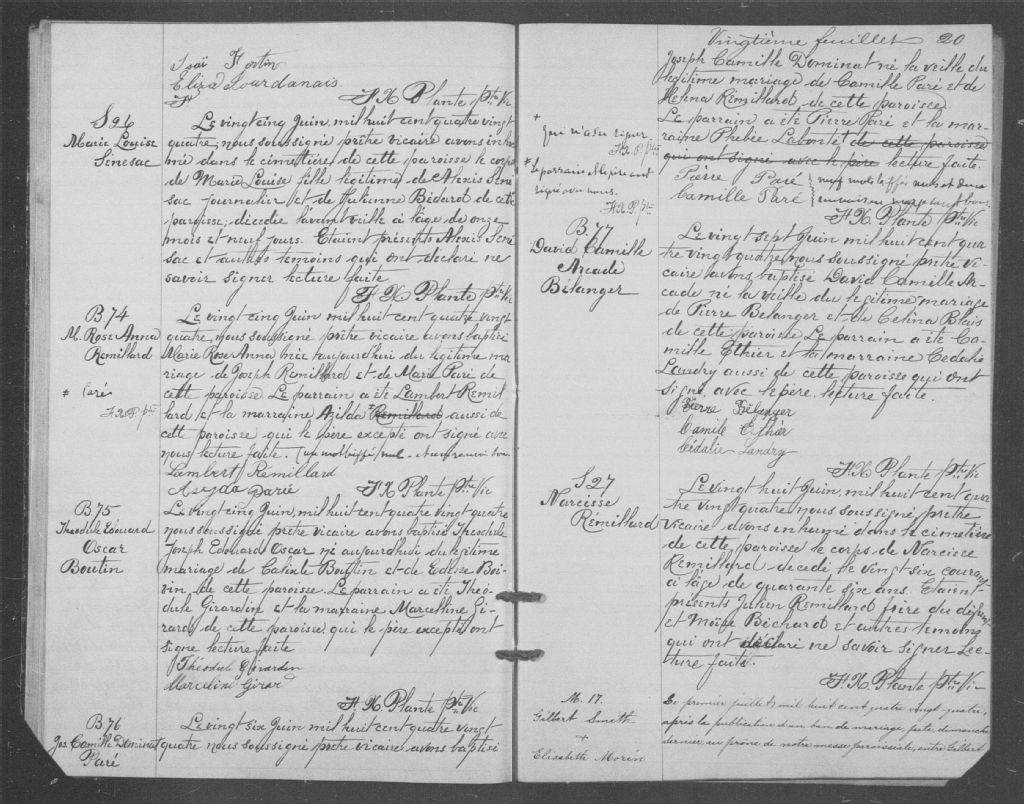 Isaï Fortin
Eliza Lourdanais
F. X. Plante Ptre Vic
S 26
Marie Louise
Senesac
Le vingt cinq Juin, mil huit cent quatre vingt
quatre, nous soussigné prêtre vicaire avons inhu
mé dans le cimetière de cette paroisse le corps
de Marie Louise fille légitime de Alexis Séné
sac journalier et de Julienne Bédard de cette
paroisse, décédée l'avant veille à l'âge de onze
mois et neuf jours. Etaient présents Alexis Séné
sac et autres témoins qui ont déclaré ne
savoir signer lecture faite
F. X. Plante Ptre Vic
B 74
M. Rose Anna
Remillard
* Paré
F.X.P. ptre
Le vingt cinq Juin, mil huit cent quatre vingt
quatre, nous soussigné prêtre vicaire avons baptisé
Marie Rose Anna née aujourd'hui du légitime ma
riage de Joseph Remillard et de Marie Paré de
cette paroisse Le parrain a été Lambert Remil
lard et la marraine Azilda * Remillard aussi de
cette paroisse qui le père excepté ont signé avec
nous lecture faite. (un mot biffé nul
Lambert Rémillard
Asezda Parée
F. X. Plante Ptre Vic
B 75
Theodule Edouard
Oscar
Boutin
Le vingt cinq Juin, mil huit cent quatre vingt quatre
nous soussigné prêtre vicaire avons baptisé Theodule
Joseph Edouard Oscar né aujourd'hui du légitime
mariage de Calixte Boutin et de Edesse Boi
vin de cette paroisse. Le parrain a été Théo
dule Girardin et la marraine Marcelline Gi
rard de cette paroisse, qui le père excepté ont
signé lecture faite
Théodule Girardin
Marceline Girard
F. X. Plante Ptre Vic
B 76
Jos. Camille Dominat
Paré
Le vingt six Juin mil huit cent quatre vingt
quatre nous soussigné prêtre vicaire avons baptisé
Vingtième feuillet 20
Joseph Camille Dominat né la veille du
légitime mariage de Camille Paré et de
Melina Rémillard, de cette paroisse.
Le parrain a été Pierre Paré et la mar-
raine Phebée Labonté de cette paroisse
qui ont signé avec le père lecture faite.
* qui n'a su signer
F.X.P. ptre
* Le parrain & le père ont
signé avec nous.
F.X.P. ptre
Pierre Paré
Camille Paré
F. X. Plante Ptre Vic
B. 77
David Camille
Arcade
Bélanger
Le vingt sept Juin mil huit cent qua
tre vingt quatre, nous soussigné prêtre vi
caire avons baptisé David Camille Ar
cade né la veille du légitime mariage
de Pierre Belanger et de Celina Blais
de cette paroisse Le parrain a été Ca
mille Ethier et la marraine Cedalie
Landry aussi de cette paroisse qui ont
signé avec le père, lecture faite.
Pierre Bélanger
Camile Ethier
Cédalie Landry
F. X. Plante Ptre Vic
S 27
Narcisse
Remillard
Le vingt huit Juin, mil huit cent qua
tre vingt quatre nous soussigné, prêtre
vicaire avons enhumé dans le cimetière
de cette paroisse le corps de Narcisse
Remillard décédé le vingt six courant
à l'âge de quarante six ans. Etaient
présents Julien Remillard frère du défunt
et Moïse Bechard et autres témoins
qui ont déclaré ne savoir signer Lec-
ture faite.
F. X. Plante Ptre Vic
M. 17.
Gilbert Smith
+
Elisabeth Morin
Le premier juillet, mil huit cent quatre vingt quatre,
après la publication d'un ban de mariage, faite, dimanche
dernier, au prône de notre messe paroissiale, entre Gilbert